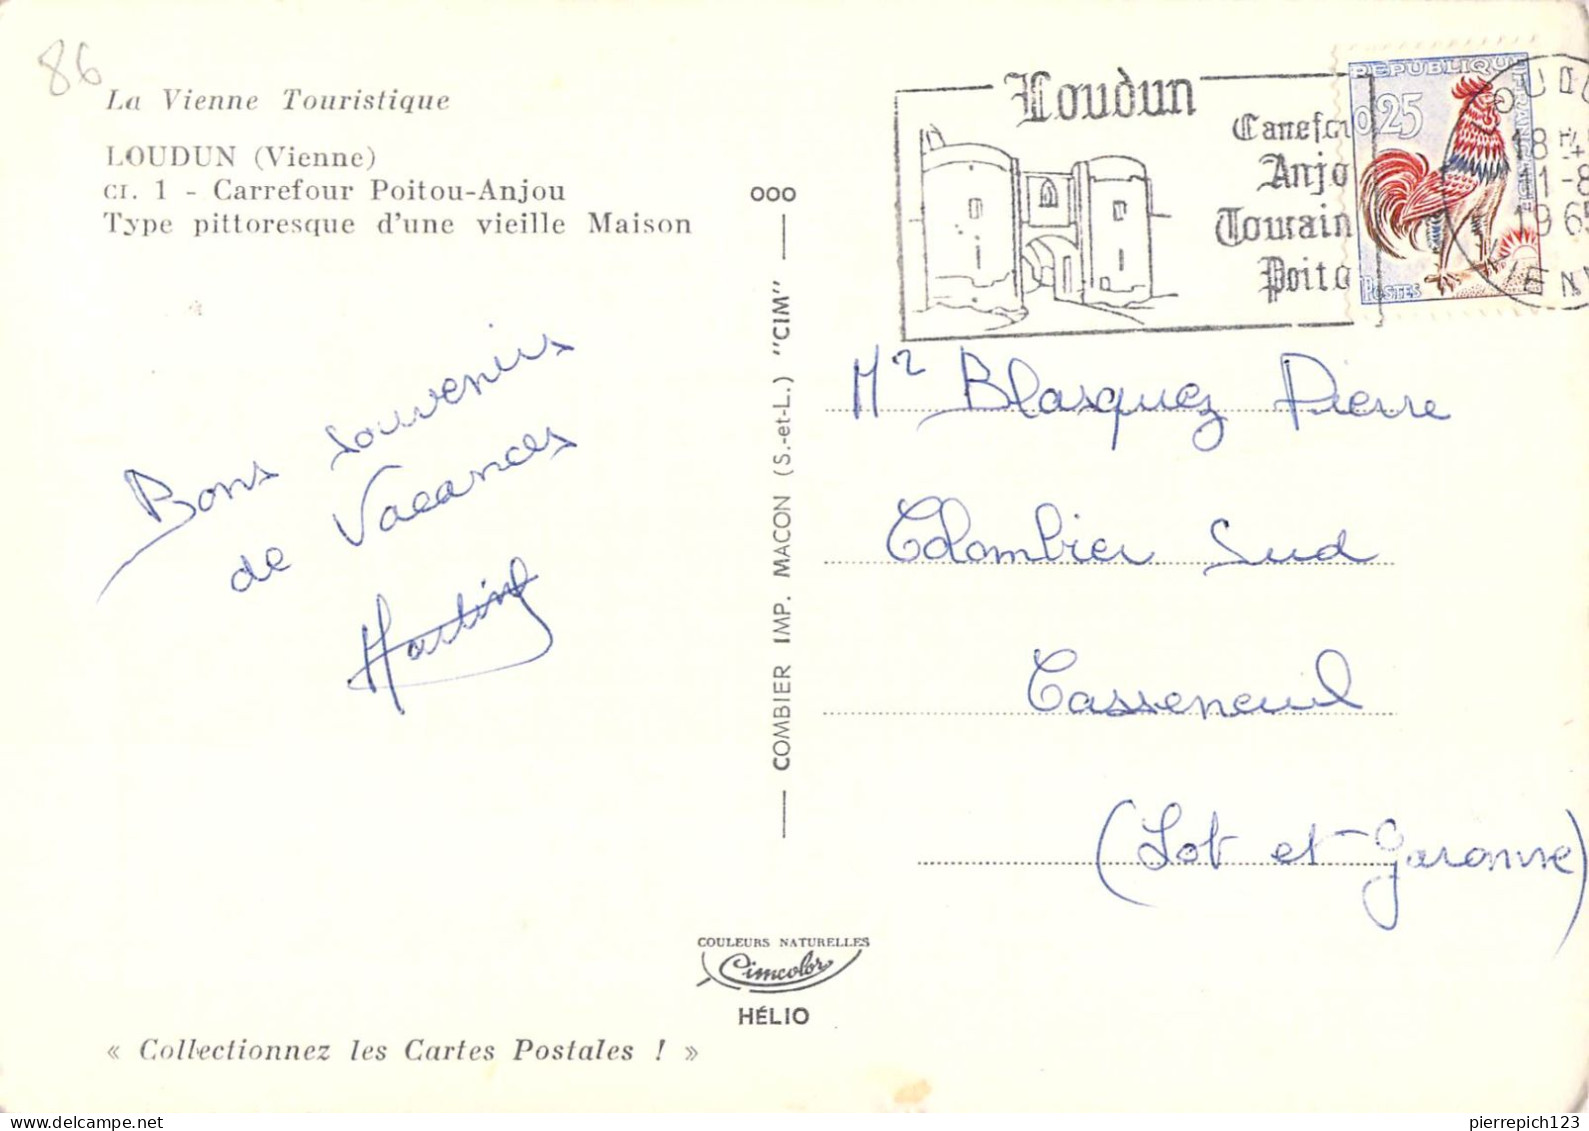 86
La Vienne Touristique
LOUDUN (Vienne)
CI. 1 - Carrefour Poitou-Anjou
Type pittoresque d'une vieille Maison
Bons souvenirs
de Vacances
Loudun
Carrefou
Anjo
Tourain
Poito
REPUBLIQUE FRANCAISE
0,25
POSTES
18 H 4
11-8
1965
VIENN
000
COMBIER IMP. MACON (S.-et-L.) "CIM"
Mr Blasquez Pierre
Colombier Sud
Casseneuil
(Lot et Garonne)
COULEURS NATURELLES
Cimcolor
HÉLIO
« Collectionnez les Cartes Postales ! »
pierrepich123